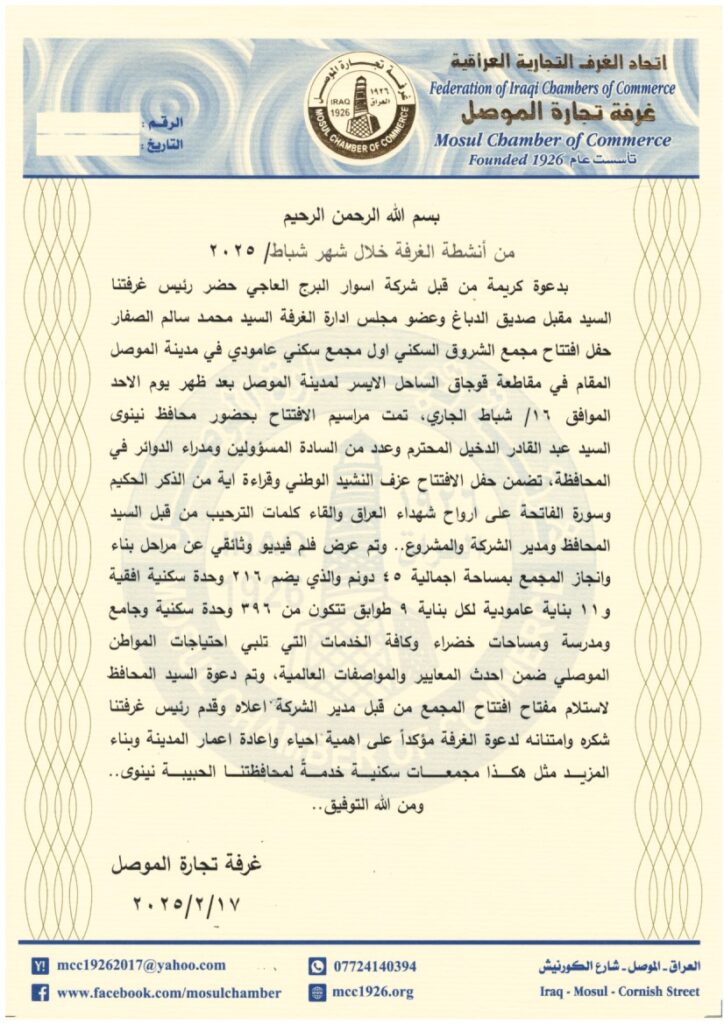 اتحاد الغرف التجارية العراقية
Federation of Iraqi Chambers of Commerce
غرفة تجارة الموصل
Mosul Chamber of Commerce
Founded 1926 تأسست عام
غرفة تجارة الموصل
IRAQ ١٩٢٦
1926 العراق
MOSUL CHAMBER OF COMMERCE
الرقم :
التاريخ :
بسم الله الرحمن الرحيم
من أنشطة الغرفة خلال شهر شباط/ ٢٠٢٥
بدعوة كريمة من قبل شركة اسوار البرج العاجي حضر رئيس غرفتنا
السيد مقبل صديق الدباغ وعضو مجلس ادارة الغرفة السيد محمد سالم الصفار
حفل افتتاح مجمع الشروق السكني اول مجمع سكني عامودي في مدينة الموصل
المقام في مقاطعة قوجاق الساحل الايسر لمدينة الموصل بعد ظهر يوم الاحد
الموافق ١٦/ شباط الجاري، تمت مراسيم الافتتاح بحضور محافظ نينوى
السيد عبد القادر الدخيل المحترم وعدد من السادة المسؤولين ومدراء الدوائر في
المحافظة، تضمن حفل الافتتاح عزف النشيد الوطني وقراءة اية من الذكر الحكيم
وسورة الفاتحة على ارواح شهداء العراق والقاء كلمات الترحيب من قبل السيد
المحافظ ومدير الشركة والمشروع.. وتم عرض فلم فيديو وثائقي عن مراحل بناء
وانجاز المجمع بمساحة اجمالية ٤٥ دونم والذي يضم ٢١٦ وحدة سكنية افقية
و١١ بناية عامودية لكل بناية ٩ طوابق تتكون من ٣٩٦ وحدة سكنية وجامع
ومدرسة ومساحات خضراء وكافة الخدمات التي تلبي احتياجات المواطن
الموصلي ضمن احدث المعايير والمواصفات العالمية، وتم دعوة السيد المحافظ
لاستلام مفتاح افتتاح المجمع من قبل مدير الشركة اعلاه وقدم رئيس غرفتنا
شكره وامتنانه لدعوة الغرفة مؤكداً على اهمية احياء واعادة اعمار المدينة وبناء
المزيد مثل هكذا مجمعات سكنية خدمةً لمحافظتنا الحبيبة نينوى..
ومن الله التوفيق..
غرفة تجارة الموصل
٢٠٢٥/٢/١٧
mcc19262017@yahoo.com
07724140394
العراق - الموصل - شارع الكورنيش
www.facebook.com/mosulchamber
mcc1926.org
Iraq - Mosul - Cornish Street